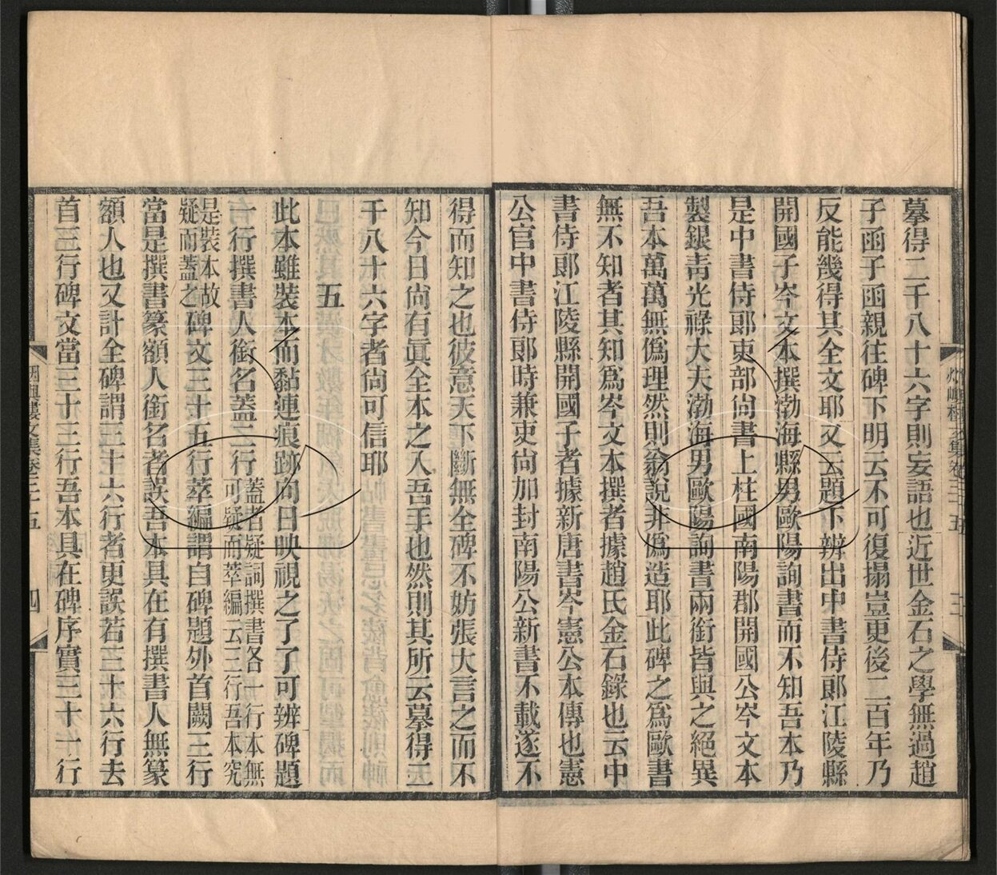 摹得二千八十六字則妄語也近世金石之學無過趙
子函子函親往碑下明云不可復搨豈更後二百年乃
反能幾得其全文耶又云題下辨出中書侍郎江陵縣
開國子岑文本撰渤海縣男歐陽詢書而不知吾本乃
是中書侍郎吏部尚書上柱國南陽郡開國公岑文本
製銀青光祿大夫渤海男歐陽詢書兩銜皆與之絕異
吾本萬萬無僞理然則翁說非僞造耶此碑之爲歐書
無不知者其知爲岑文本撰者據趙氏金石錄也云中
書侍郎江陵縣開國子者據新唐書岑憲公本傳也憲
公官中書侍郎時兼吏尚加封南陽公新書不載遂不
得而知之也彼意天下斷無全碑不妨張大言之而不
知今日尚有眞全本之入吾手也然則其所云摹得二
千八十六字者尚可信耶
五
此本雖裝本而黏連痕跡向日映視之了了可辨碑題
一行撰書人銜名蓋二行蓋者疑詞撰書各一行本無可疑而萃編云三行吾本究
是裝本故疑而蓋之碑文三十五行萃編謂自碑題外首闕三行
當是撰書篆額人銜名者誤吾本具在有撰書人無篆
額人也又計全碑謂三十六行者更誤若三十六行去
首三行碑文當三十三行吾本具在碑序實三十一行
四